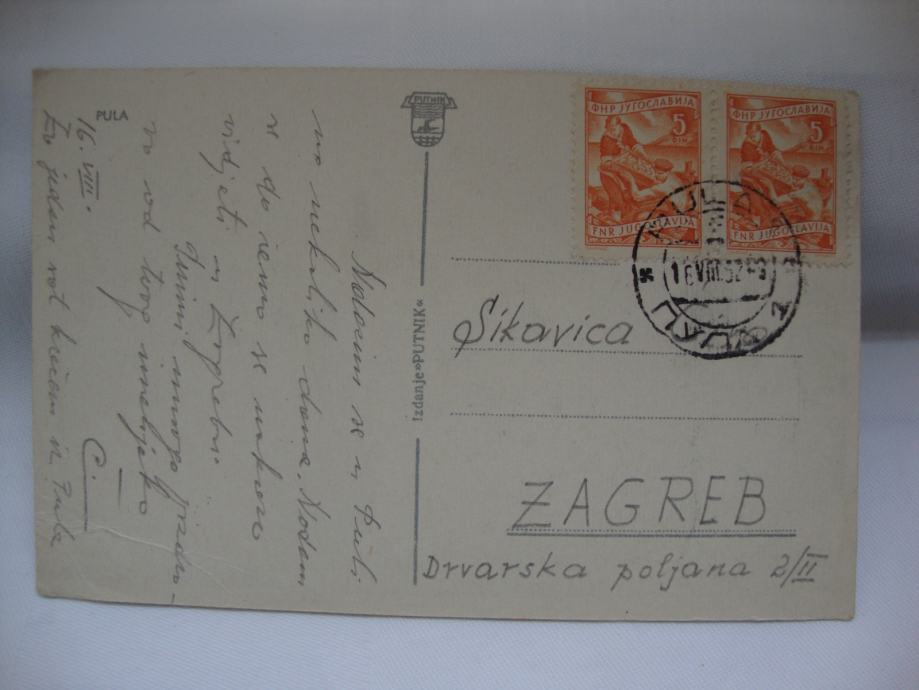 PULA
16. VIII.
Nalazim se u Puli
na nekoliko dana. Nadam
se da ćemo se uskoro
vidjeti u Zagrebu.
Primi mnogo pozdra-
va od tvog
C.
PUTNIK
Izdanje »PUTNIK«
ФНР ЈУГОСЛАВИЈА
5
DIN
FNR JUGOSLAVIJA
ФНР ЈУГОСЛАВИЈА
5
DIN
FNR JUGOSLAVIJA
PULA
16 VIII 52
Sikavica
ZAGREB
Drvarska poljana 2/II